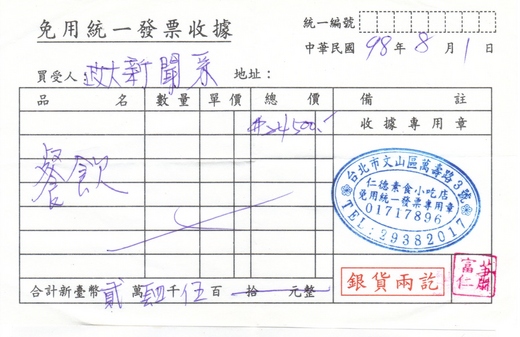 免用統一發票收據
統一編號
中華民國 98 年 8 月 1 日
買受人 政大新聞系 地址：
品名 數量 單價 總價 備註
#24,500.- 收據專用章
餐飲
台北市文山區萬壽路3號
仁德素食小吃店
免用統一發票專用章
01717896
TEL:29382017
合計新臺幣 貳 萬 肆 千 伍 百 拾 元整
銀貨兩訖
富仁